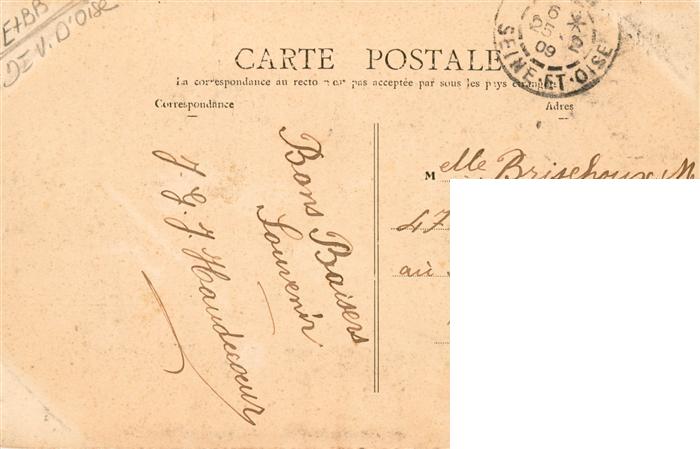 E+BB
DE V. D'OISE
CARTE POSTALE
La correspondance au recto n'est pas acceptée par tous les pays étrangers
Correspondance
Adres
SEINE-ET-OISE
6
25
09
Bons Baisers
Souvenir
J. G. J. Haudecoeur
Melle Brisehoux M
47
au